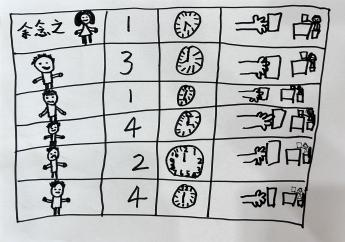 余念之 1
3
1
4
2
4